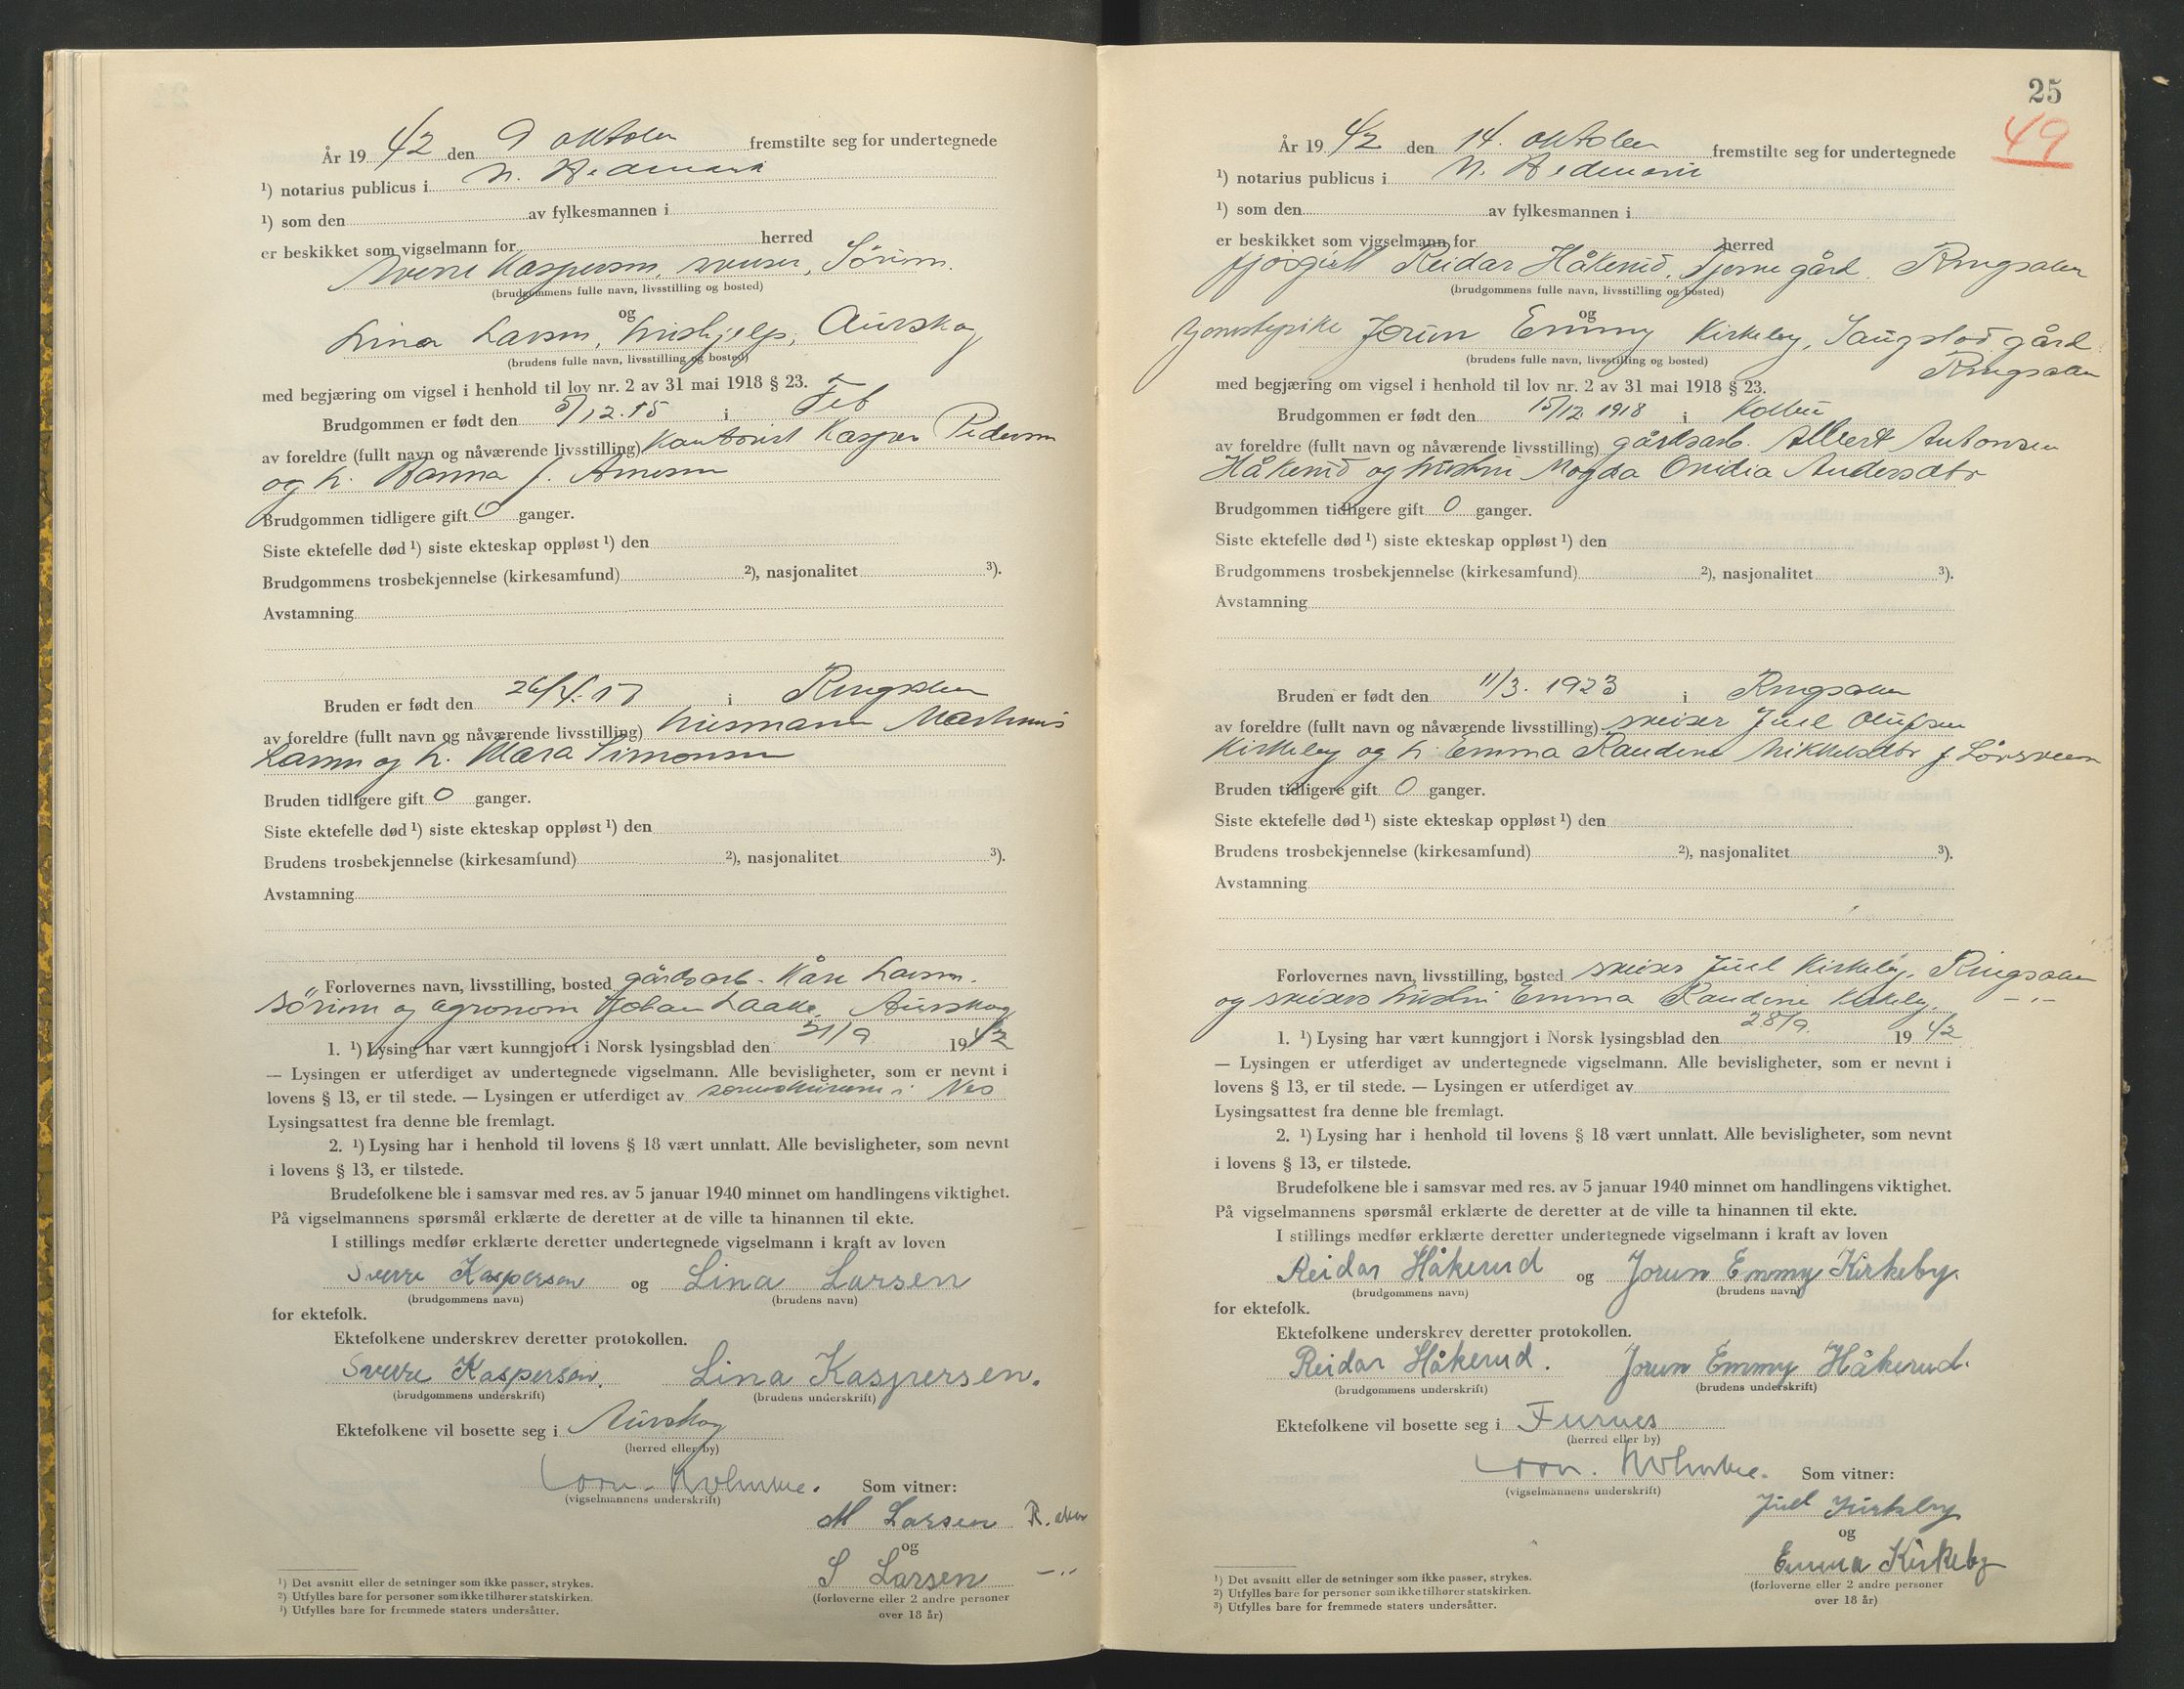 År 1942 den 9 oktober fremstilte seg for undertegnede
¹) notarius publicus i N. Hedmark
¹) som den av fylkesmannen i
er beskikket som vigselmann for herred
Sverre Kaspersen, sveiser, Sørum.
(brudgommens fulle navn, livsstilling og bosted)
og
Lina Larsen, hushjelp, Aurskog
(brudens fulle navn, livsstilling og bosted)
med begjæring om vigsel i henhold til lov nr. 2 av 31 mai 1918 § 23.
Brudgommen er født den 5/12.15 i Fet
av foreldre (fullt navn og nåværende livsstilling) Kontorist Kasper Pedersen
og h. Hanna f. Arnesen
Brudgommen tidligere gift 0 ganger.
Siste ektefelle død ¹) siste ekteskap oppløst ¹) den
Brudgommens trosbekjennelse (kirkesamfund) ²), nasjonalitet ³).
Avstamning
Bruden er født den i Ringsaker
av foreldre (fullt navn og nåværende livsstilling) husmann Martinus
Larsen og h. Mara Simonsen
Bruden tidligere gift 0 ganger.
Siste ektefelle død ¹) siste ekteskap oppløst ¹) den
Brudens trosbekjennelse (kirkesamfund) ²), nasjonalitet ³).
Avstamning
Forlovernes navn, livsstilling, bosted gårdsarb. Kåre Larsen.
Sørum og agronom Johan Laake, Aurskog
1. ¹) Lysing har vært kunngjort i Norsk lysingsblad den 21/9 1942
— Lysingen er utferdiget av undertegnede vigselmann. Alle bevisligheter, som er nevnt i
lovens § 13, er til stede. — Lysingen er utferdiget av i Nes
Lysingsattest fra denne ble fremlagt.
2. ¹) Lysing har i henhold til lovens § 18 vært unnlatt. Alle bevisligheter, som nevnt
i lovens § 13, er tilstede.
Brudefolkene ble i samsvar med res. av 5 januar 1940 minnet om handlingens viktighet.
På vigselmannens spørsmål erklærte de deretter at de ville ta hinannen til ekte.
I stillings medfør erklærte deretter undertegnede vigselmann i kraft av loven
Sverre Kaspersen og Lina Larsen
(brudgommens navn) (brudens navn)
for ektefolk.
Ektefolkene underskrev deretter protokollen.
Sverre Kaspersen. Lina Kaspersen.
(brudgommens underskrift) (brudens underskrift)
Ektefolkene vil bosette seg i Aurskog
(herred eller by)
Som vitner:
(vigselmannens underskrift)
M Larsen R.aker
og
S Larsen —"—
(forloverne eller 2 andre personer
over 18 år)
¹) Det avsnitt eller de setninger som ikke passer, strykes.
²) Utfylles bare for personer som ikke tilhører statskirken.
³) Utfylles bare for fremmede staters undersåtter.
25
49
År 1942 den 14. oktober fremstilte seg for undertegnede
¹) notarius publicus i N. Hedmark
¹) som den av fylkesmannen i
er beskikket som vigselmann for herred
fjøsgutt Reidar Håkerud, Tjerne gård. Ringsaker
(brudgommens fulle navn, livsstilling og bosted)
og
Jorun Emmy Kirkeby, Saugstad gård
Ringsaker
(brudens fulle navn, livsstilling og bosted)
med begjæring om vigsel i henhold til lov nr. 2 av 31 mai 1918 § 23.
Brudgommen er født den 15/12 1918 i Kolbu
av foreldre (fullt navn og nåværende livsstilling) gårdsarb. Albert Antonsen
Håkerud og hustru Magda Andersdtr
Brudgommen tidligere gift 0 ganger.
Siste ektefelle død ¹) siste ekteskap oppløst ¹) den
Brudgommens trosbekjennelse (kirkesamfund) ²), nasjonalitet ³).
Avstamning
Bruden er født den 11/3. 1923 i Ringsaker
av foreldre (fullt navn og nåværende livsstilling) sveiser Juel Olufsen
Kirkeby og h. Emma Randine Mikkelsdtr f. Lørsveen
Bruden tidligere gift 0 ganger.
Siste ektefelle død ¹) siste ekteskap oppløst ¹) den
Brudens trosbekjennelse (kirkesamfund) ²), nasjonalitet ³).
Avstamning
Forlovernes navn, livsstilling, bosted sveiser Juel Kirkeby, Ringsaker
og sveisers hustru Emma Randine Kirkeby. —"—
1. ¹) Lysing har vært kunngjort i Norsk lysingsblad den 28/9. 1942
— Lysingen er utferdiget av undertegnede vigselmann. Alle bevisligheter, som er nevnt i
lovens § 13, er til stede. — Lysingen er utferdiget av
Lysingsattest fra denne ble fremlagt.
2. ¹) Lysing har i henhold til lovens § 18 vært unnlatt. Alle bevisligheter, som nevnt
i lovens § 13, er tilstede.
Brudefolkene ble i samsvar med res. av 5 januar 1940 minnet om handlingens viktighet.
På vigselmannens spørsmål erklærte de deretter at de ville ta hinannen til ekte.
I stillings medfør erklærte deretter undertegnede vigselmann i kraft av loven
Reidar Håkerud og Jorun Emmy Kirkeby.
(brudgommens navn) (brudens navn)
for ektefolk.
Ektefolkene underskrev deretter protokollen.
Reidar Håkerud. Jorun Emmy Håkerud.
(brudgommens underskrift) (brudens underskrift)
Ektefolkene vil bosette seg i Furnes
(herred eller by)
Som vitner:
(vigselmannens underskrift)
Juel Kirkeby
og
Emma Kirkeby
(forloverne eller 2 andre personer
over 18 år)
¹) Det avsnitt eller de setninger som ikke passer, strykes.
²) Utfylles bare for personer som ikke tilhører statskirken.
³) Utfylles bare for fremmede staters undersåtter.